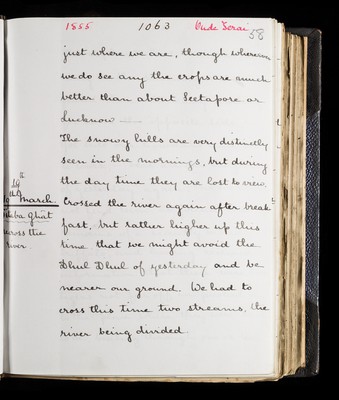 1855 1063 Oude Terai 58
just where we are, though wherever
we do see any the crops are much
better than about Seetapore or
Lucknow
The snowy hills are very distinctly
seen in the mornings, but during
the day time they are lost to view.
19th
March.
Ghat
across the
river
Crossed the river again after break
fast, but rather higher up this
time that we might avoid the
Dhul Dhul of yesterday and be
nearer our ground We had to
cross this time two streams, the
river being divided